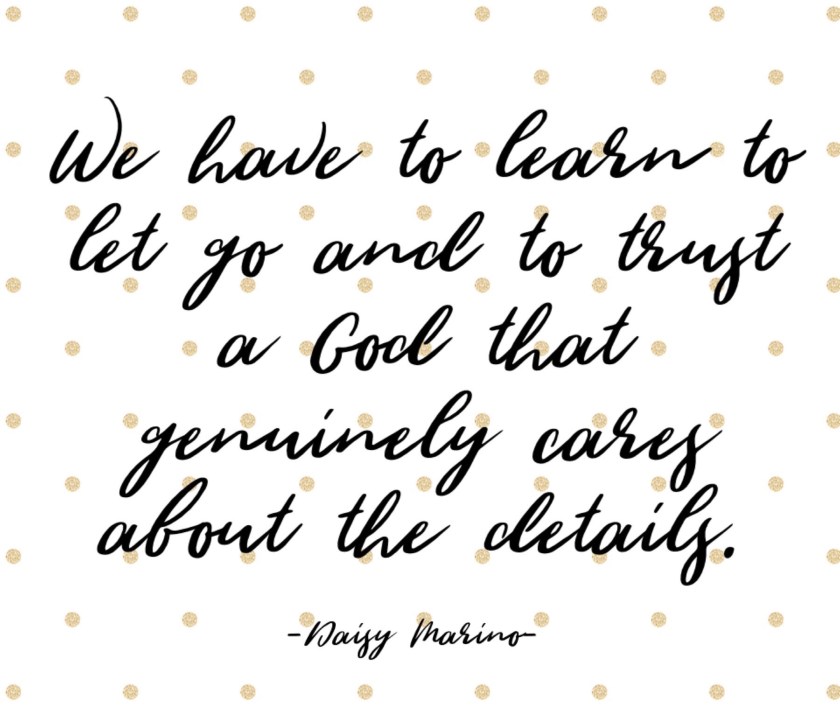 We have to learn to
let go and to trust
a God that
genuinely cares
about the details.
-Daisy Marino-